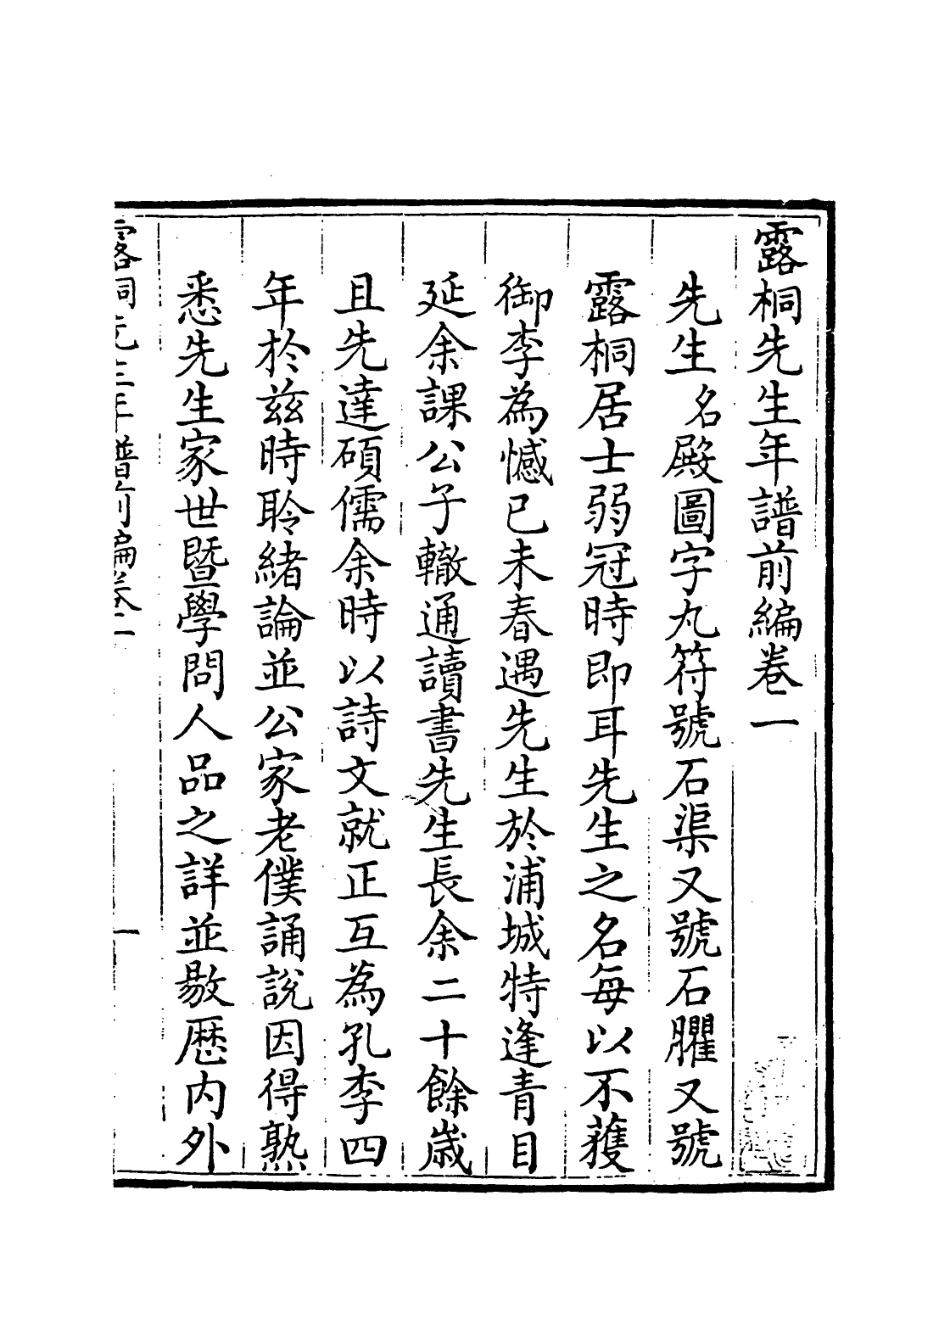 露桐先生年譜前編卷一
先生名殿圖字九符號石渠又號石臞又號
露桐居士弱冠時即耳先生之名每以不獲
御李為憾已未春遇先生於浦城特逢青目
延余課公子轍通讀書先生長余二十餘歲
且先達碩儒余時以詩文就正互為孔李四
年於茲時聆緒論並公家老僕誦說因得熟
悉先生家世暨學問人品之詳並敭歷内外
露桐先生年譜前編卷一
一